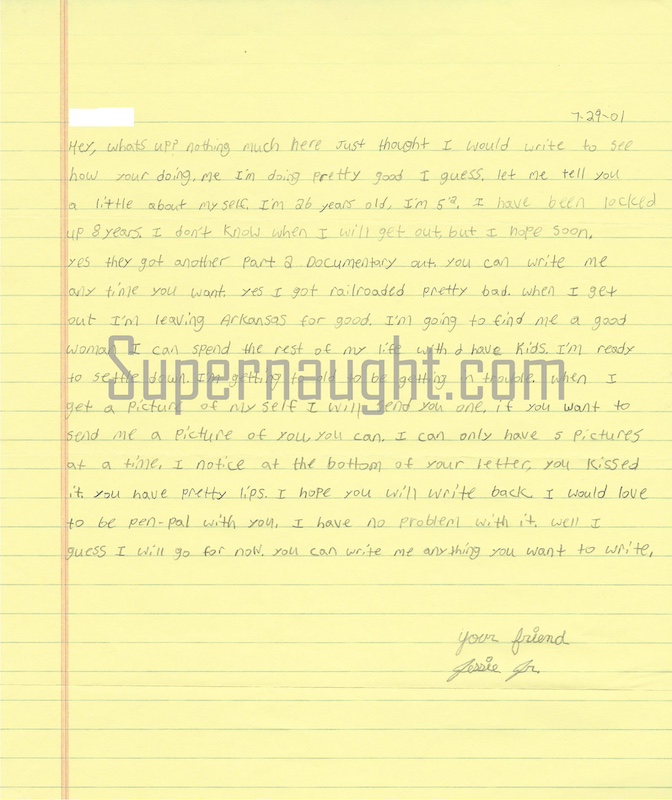 7-29-01
Hey, whats up? nothing much here Just thought I would write to see
how your doing, me I'm doing pretty good I guess. let me tell you
a little about my self. I'm 26 years old, I'm 5'2. I have been locked
up 8 years. I don't know when I will get out, but I hope soon.
yes they got another Part 2 Documentary out. you can write me
any time you want. yes I got railroaded pretty bad. when I get
out I'm leaving Arkansas for good. I'm going to find me a good
woman I can spend the rest of my life with & have kids. I'm ready
to settle down. I'm getting to old to be getting in trouble. when I
Supernaught.com
get a picture of my self I will send you one, if you want to
send me a picture of you, you can. I can only have 5 pictures
at a time. I notice at the bottom of your letter, you kissed
it. you have pretty lips. I hope you will write back. I would love
to be pen-pal with you. I have no problem with it. well I
guess I will go for now. you can write me anything you want to write.
your friend
Jessie Jr.